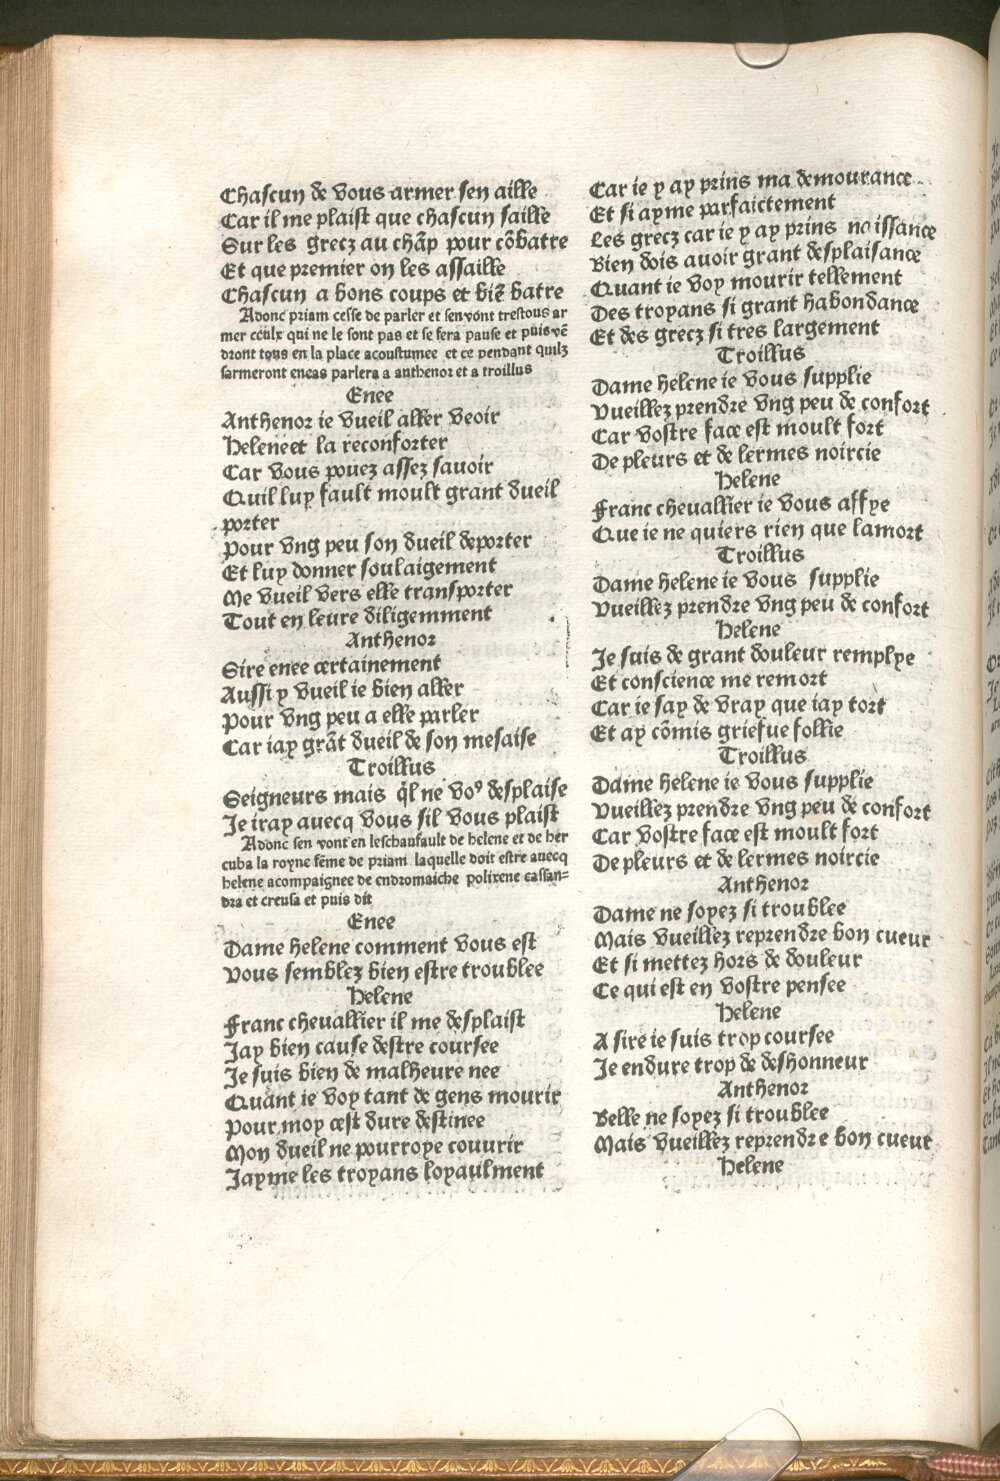 Chascun de vous armer sen aille
Car il me plaist que chascun saille
Sur les grecz au chãp pour cõbatre
Et que premier on les assaille
Chascun a bons coups et biẽ batre
Adonc priam cesse de parler et sen vont trestous ar
mer ceulx qui ne le sont pas et se fera pause et puis vẽ
dront tous en la place acoustumee et ce pendant quilz
sarmeront eneas parlera a anthenor et a troillus
Enee
Anthenor ie vueil aller veoir
Helene et la reconforter
Car vous pouez assez sauoir
Quil luy fault moult grant dueil
porter
Pour vng peu son dueil deporter
Et luy donner soulaigement
Me vueil vers elle transporter
Tout en leure diligemment
Anthenor
Sire enee certainement
Aussi y vueil ie bien aller
Pour vng peu a elle parler
Car iay grãt dueil de son mesaise
Troillus
Seigneurs mais q̃l ne voꝰ desplaise
Je iray auecq vous sil vous plaist
Adonc sen vont en leschaufault de helene et de her
cuba la royne fẽme de priam laquelle doit estre auecq
helene acompaignee de endromaiche polixene cassan=
dra et creusa et puis dit
Enee
Dame helene comment vous est
Vous semblez bien estre troublee
Helene
Franc cheuallier il me desplaist
Jay bien cause destre coursee
Je suis bien de malheure nee
Quant ie voy tant de gens mourir
Pour moy cest dure destinee
Mon dueil ne pourroye couurir
Jayme les troyans loyaulment
Car ie y ay prins ma demourance
Et si ayme parfaictement
Les grecz car ie y ay prins naissance
Bien dois auoir grant desplaisance
Quant ie voy mourir tellement
Des troyans si grant habondance
Et des grecz si tres largement
Troillus
Dame helene ie vous supplie
Vueillez prendre vng peu de confort
Car vostre face est moult fort
De pleurs et de lermes noircie
Helene
Franc cheuallier ie vous affye
Que ie ne quiers rien que lamort
Troillus
Dame helene ie vous supplie
Vueillez prendre vng peu de confort
Helene
Je suis de grant douleur remplye
Et conscience me remort
Car ie say de vray que iay tort
Et ay cõmis griefue follie
Troillus
Dame helene ie vous supplie
Vueillez prendre vng peu de confort
Car vostre face est moult fort
De pleurs et de lermes noircie
Anthenor
Dame ne soyez si troublee
Mais vueillez reprendre bon cueur
Et si mettez hors de douleur
Ce qui est en vostre pensee
Helene
A sire ie suis trop coursee
Je endure trop de deshonneur
Anthenor
Belle ne soyez si troublee
Mais vueillez reprendre bon cueur
Helene